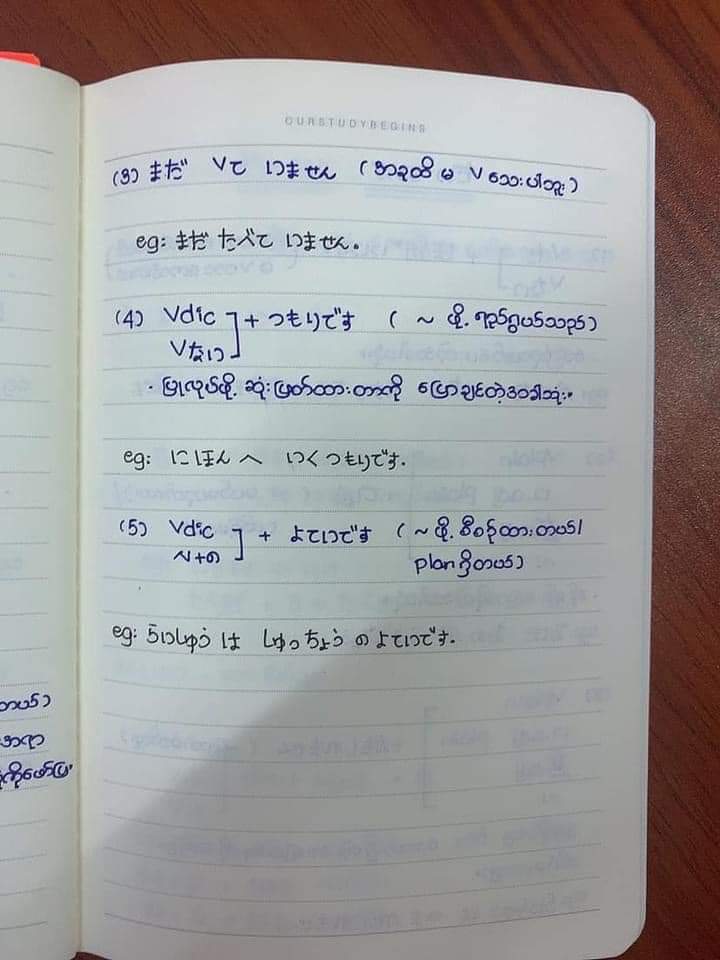 OURSTUDYBEGINS
(3) まだ Vて いません (အခုထိ မ V သေးပါဘူး)
eg: まだ たべて いません。
(4) Vdic ] + つもりです ( ~ ဖို့ ရည်ရွယ်သည်)
Vない
· ပြုလုပ်ဖို့ ဆုံးဖြတ်ထားတာကို ပြောချင်တဲ့အခါသုံး။
eg: にほんへ いくつもりです.
(5) Vdic ] + よていです ( ~ ဖို့ စီစဉ်ထားတယ်/
N+の plan ရှိတယ်)
eg: らいしゅう は しゅっちょう の よていです.
တယ်)